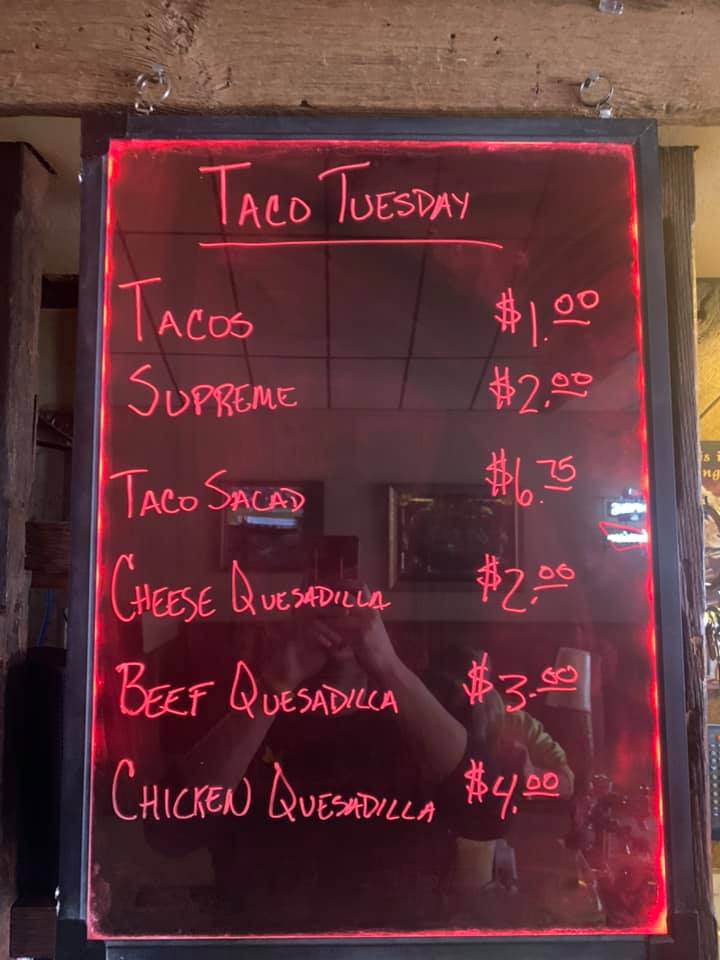 TACO TUESDAY
TACOS $1.00
SUPREME $2.00
TACO SALAD $6.75
CHEESE QUESADILLA $2.00
BEEF QUESADILLA $3.00
CHICKEN QUESADILLA $4.00